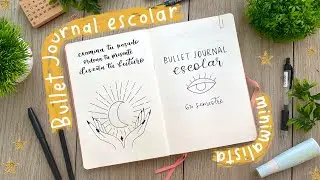 Bullet Journal escolar
examina tu pasado
ordena tu presente
diseña tu futuro
BULLET JOURNAL
escolar
6to semestre
minimalista